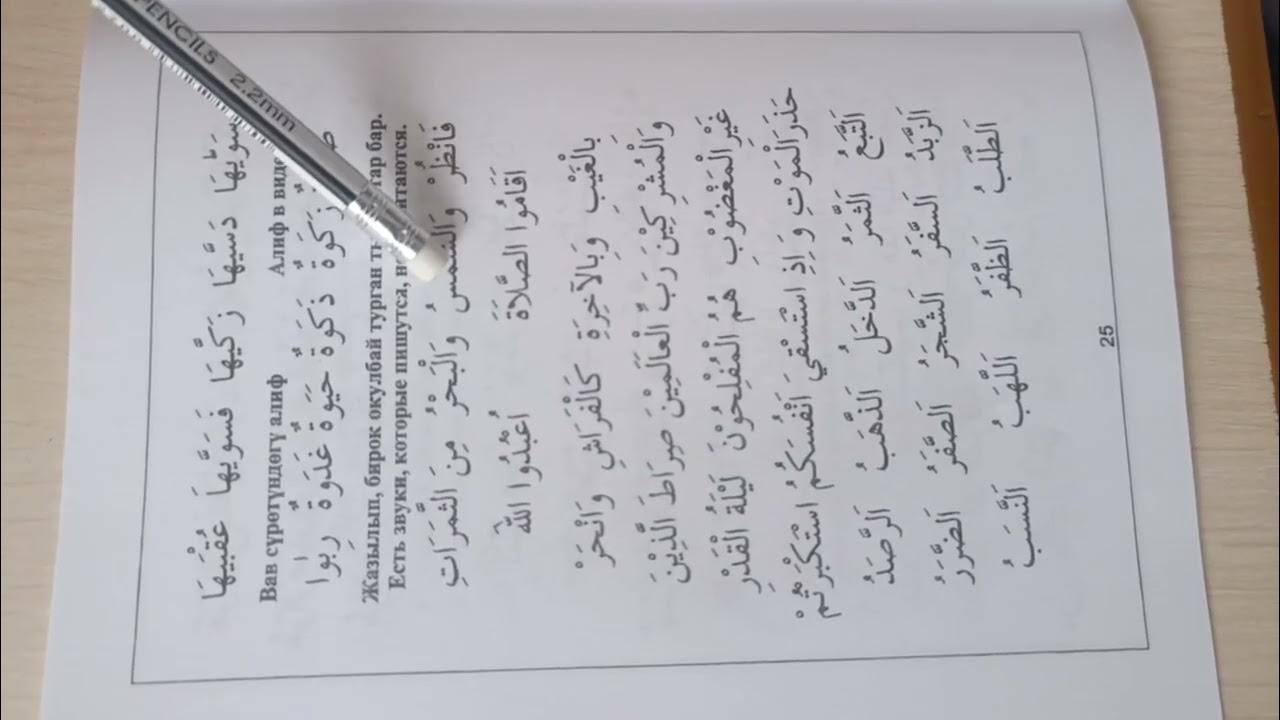 سَوَّيهَا دَسَّيهَا زَكَّيهَا فَسَوَّيهَا عُقْبَيهَا
Вав сүрөтүндөгү алиф Алиф в виде
زَكَوةٌ ذَكَوةٌ حَيَوةٌ غَدَوةٌ رِبَوا
Жазылып, бирок окулбай турган тар бар.
Есть звуки, которые пишутся, но читаются.
فَانْظُرْ وَالشَّمْسُ وَالْبَحْرُ مِنَ الثَّمَرَاتِ
اَقَامُوا الصَّلَاةَ اُعْبُدُوا اللهَ
بِالْغَيْبِ وَبِالْآخِرَةِ كَالْفَرَاشِ وَانْحَرْ
وَالْمُشْرِكِيْنَ رَبِّ الْعَالَمِيْنَ صِرَاطَ الَّذِيْنَ
غَيْرِ الْمَغْضُوْبِ هُمُ الْمُفْلِحُوْنَ لَيْلَةُ الْقَدْرِ
حَذَرَ الْمَوْتِ وَ اِذِ اسْتَسْقَي اَنْفُسَكُمُ اسْتَكْبَرْتُمْ
اَلتَّبَعُ اَلثَّمَرُ اَلدَّخَلُ اَلذَّهَبُ اَلرَّصَدُ
اَلزَّبَدُ اَلسَّفَرُ اَلشَّجَرُ اَلصَّفَرُ اَلضَّرَرُ
اَلطَّلَبُ اَلظَّفَرُ اَللَّهَبُ اَلنَّسَبُ
25
PENCILS 2.2mm